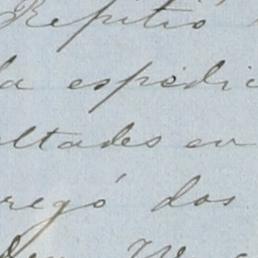 Repitió
la espedic
ltades en
regó dos